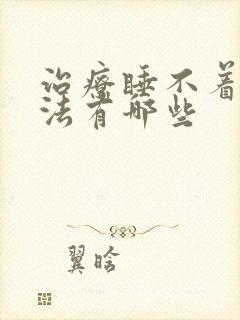 治疗睡不着
法有哪些
翼晗